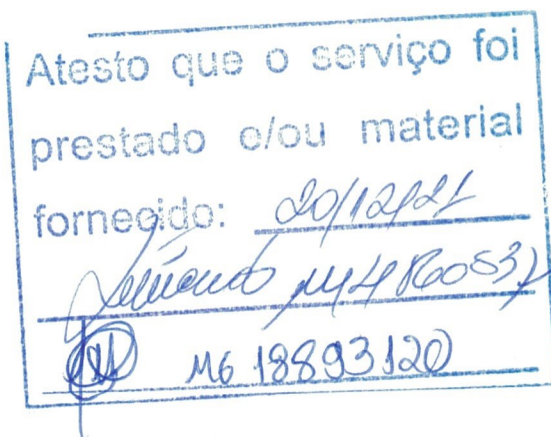 Atesto que o serviço foi
prestado e/ou material
fornecido: 20/12/21
MG 18893120